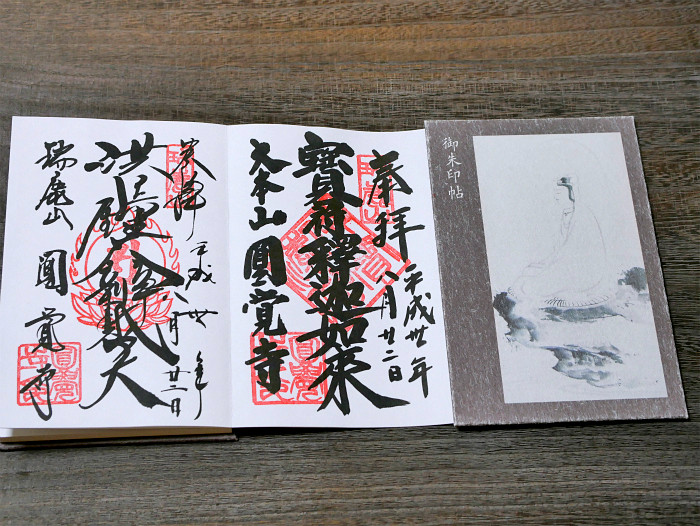 御朱印帖
奉拝
平成卅年
八月廿二日
寶冠釋迦如来
大本山圓覚寺
奉拝
平成卅年
八月廿二日
洪鐘
瑞鹿山
圓覚寺